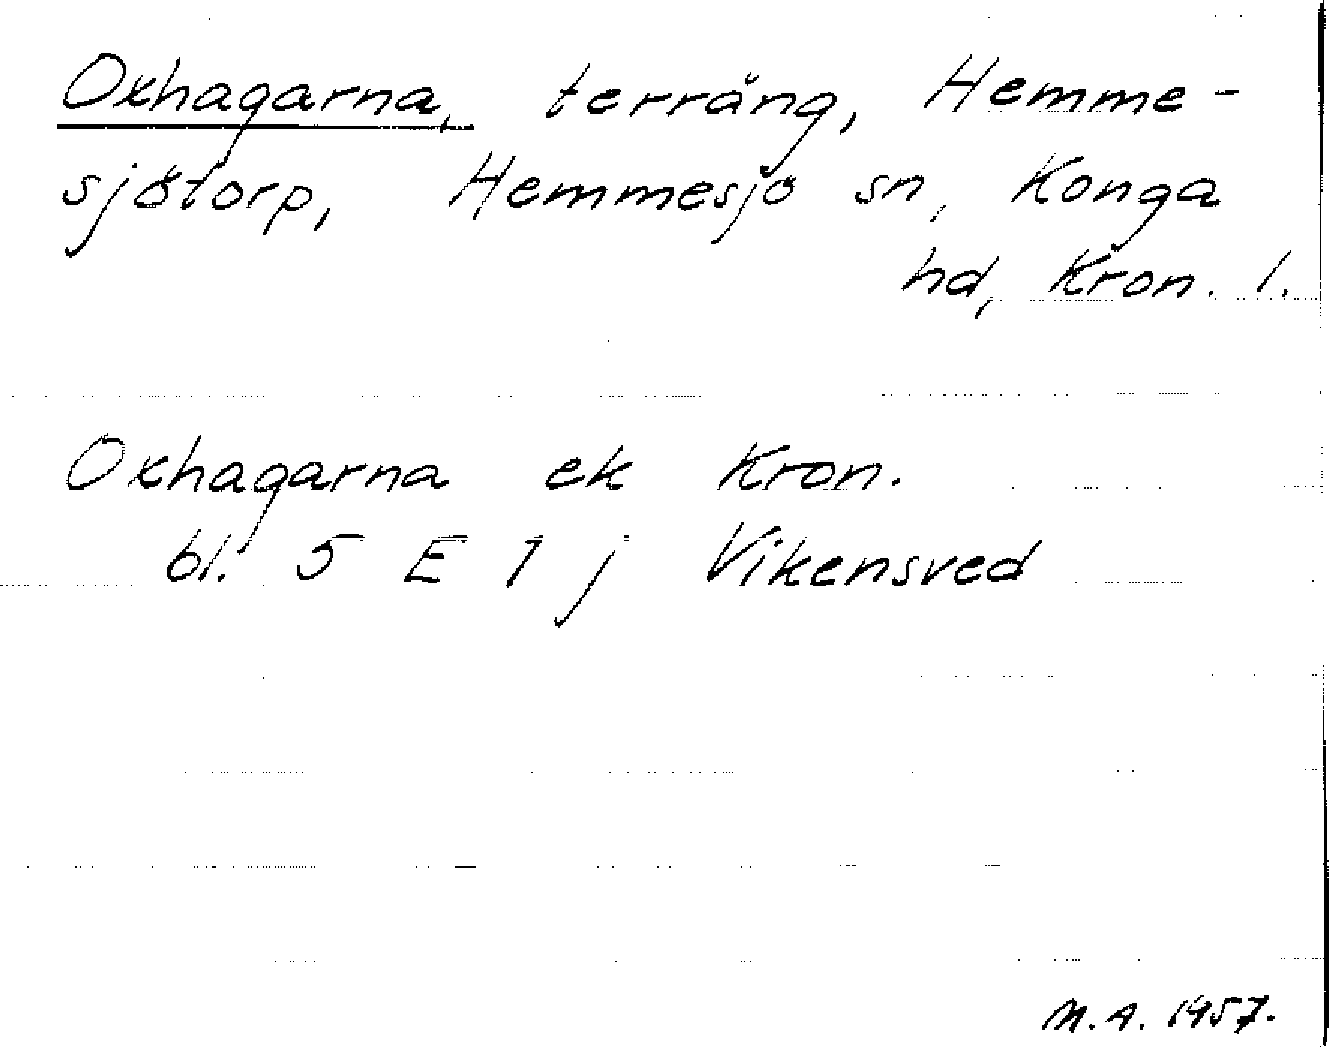 Oxhagarna, terräng, Hemme-
sjötorp, Hemmesjö sn, Konga
hd, Kron. l.
Oxhagarna ek Kron.
bl. 5 E 1 j Vikensved
M.A. 1957.